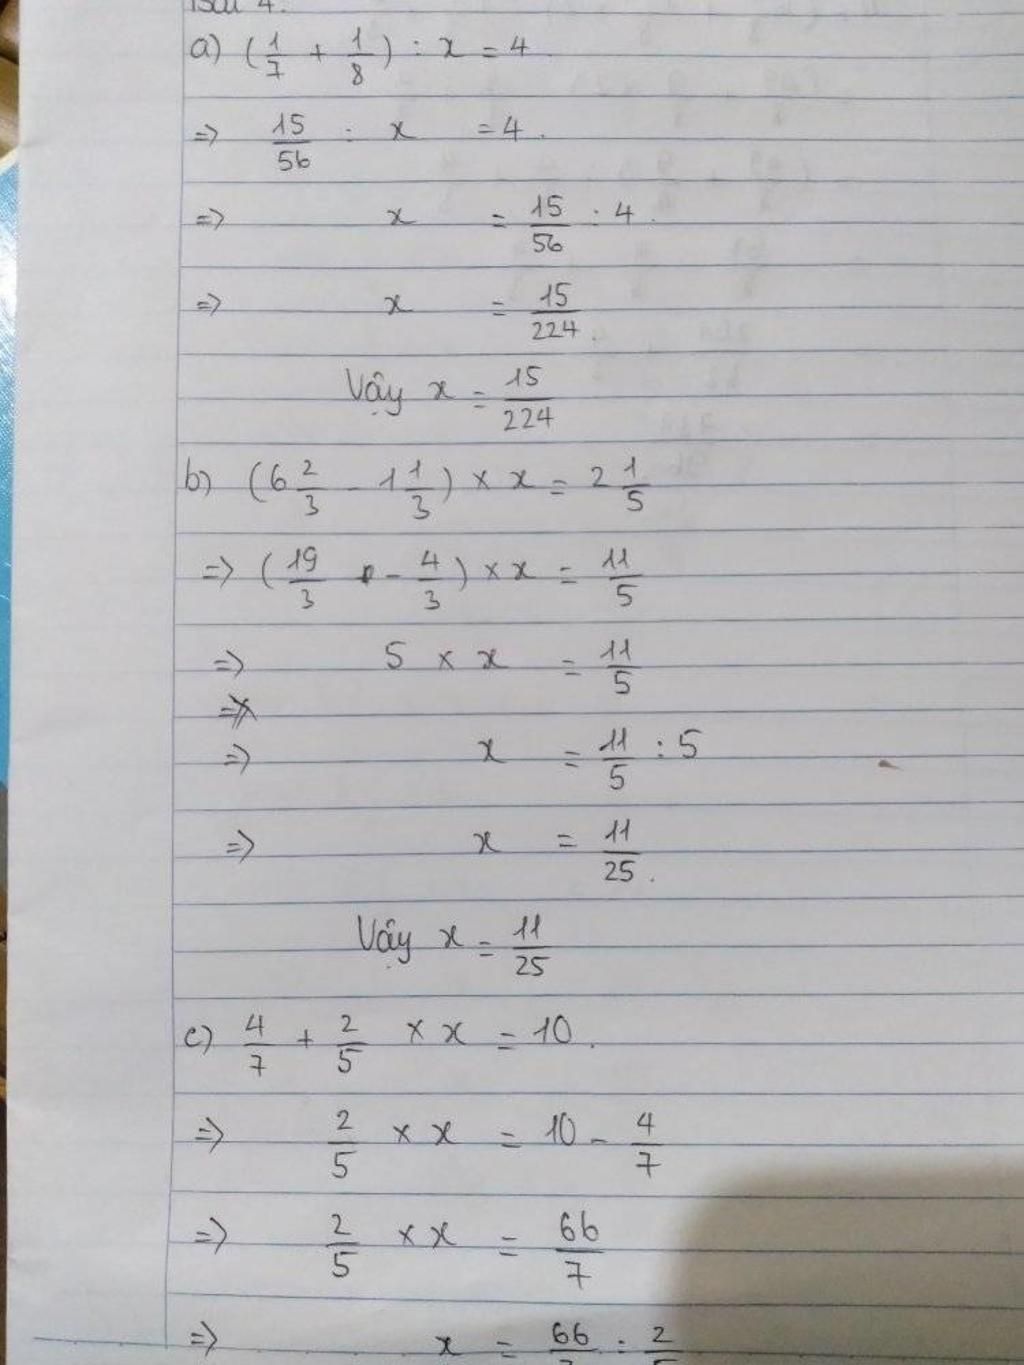 Bài 4.
a) (1/7 + 1/8) : x = 4
=> 15/56 : x = 4.
=> x = 15/56 : 4.
=> x = 15/224.
Vậy x = 15/224
b) (6 2/3 - 1 1/3) × x = 2 1/5
=> (19/3 - 4/3) × x = 11/5
=> 5 × x = 11/5
=> x = 11/5 : 5
=> x = 11/25.
Vậy x = 11/25
c) 4/7 + 2/5 × x = 10.
=> 2/5 × x = 10 - 4/7
=> 2/5 × x = 66/7
=> x = 66/7 : 2/5